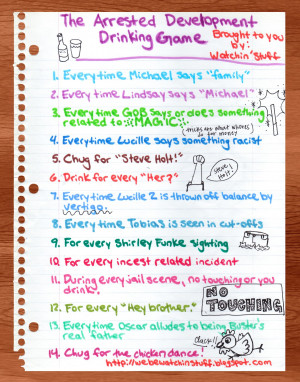 The Arrested Development
Drinking Game
Brought to you
by:
Watchin' Stuff
1. Everytime Michael says "family"
2. Every time Lindsay says "Michael"
3. Every time GOB says or does something
related to MAGIC
(tricks are what whores
do for money
4. Everytime Lucille says something racist
5. Chug for "Steve Holt!"
STEVE
HOLT!
6. Drink for every "Her?"
7. Every time Lucille 2 is thrown off balance by
vertigo
8. Every time Tobias is seen in cut-offs
9. For every Shirley Funke sighting
10. For every incest related incident
11. During every jail scene, no touching or you
drink.
NO
TOUCHING
12. For every "Hey brother."
13. Everytime Oscar alludes to being Buster's
real father
14. Chug for the chicken dance!
http://webewatchinstuff.blogspot.com